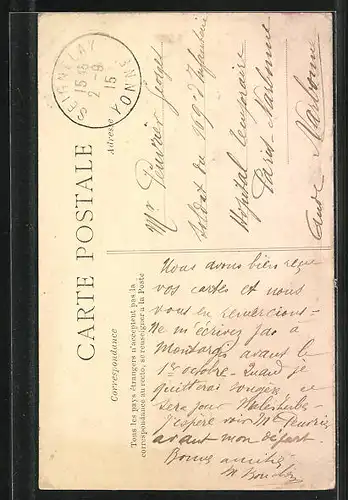 CARTE POSTALE
Correspondance
Tous les pays étrangers n'acceptent pas la
correspondance au recto, se renseigner à la Poste
Adresse
SEIGNELAY
15
2-9
15
YONNE
Mr Georges
Soldat du 169e d'Infanterie
Hôpital temporaire
Narbonne
Aude Narbonne
Nous avons bien reçu
vos cartes et nous
vous en remercions -
Ne m'écrivez pas à
Montargis avant le
1er octobre - Quand je
quitterai ce
sera pour Malesherbes -
J'espère voir Me
avant mon départ
Bonnes amitiés